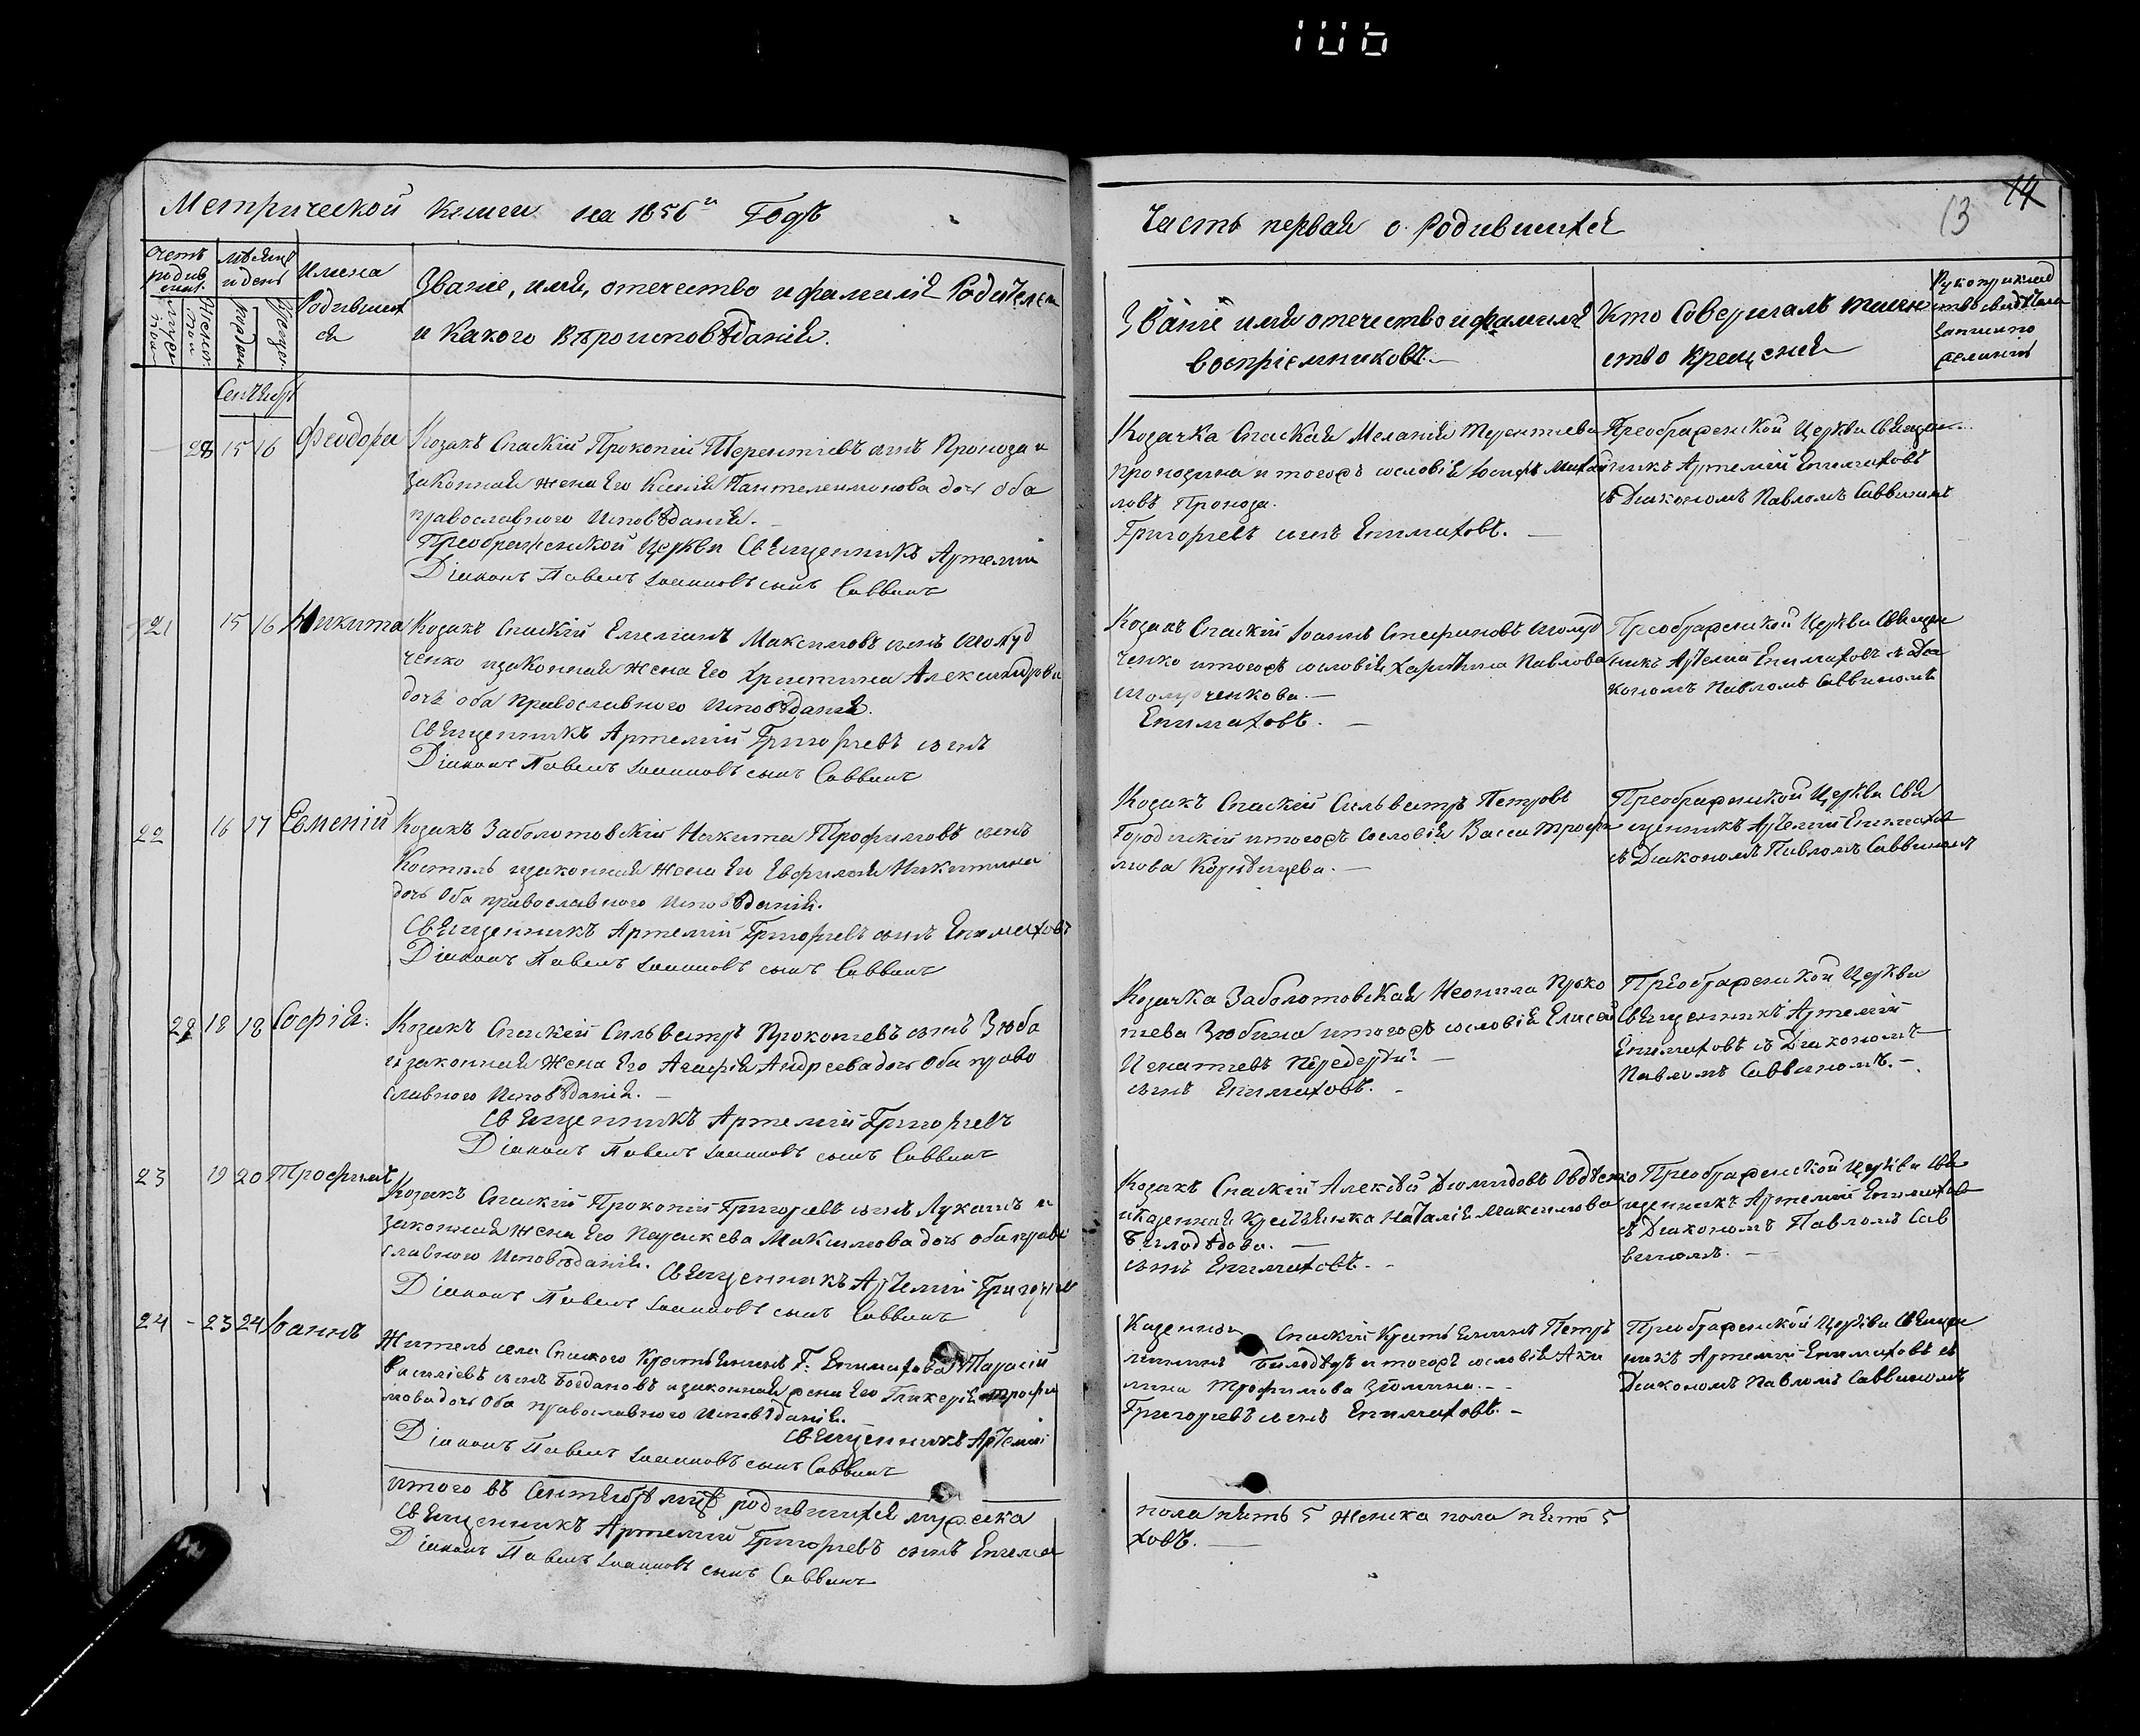 106
Метрической книги на 1856й Годъ
Часть первая о Родившихся
13 14
Счетъ родив шихъ.
Мѣсяцъ и день
Имена Родившихся
Званіе, имя, отечество и фамилія Родителей
и Какого Вѣроисповѣданія.
Званіе имя отечество и фамилія
воспріемниковъ.
Кто Совершалъ таин
ство крещенія
Рукоприклад
ство свидѣтелей
записи по
желанію
Мужеска
Женска
рожденія
Крещенія
Сентябрь
28 15 16 Феодора
Козакъ Спаскій Прокопій Терентіевъ сынъ Проноза и
законная жена Его Ксенія Пантелеимонова дочь Оба
православного Исповѣданія.
Преображенской Церкви Священникъ Артемій
Діаконъ Павелъ Іоанновъ сынъ Саввинъ
Козачка Спаская Меланія Терентіева
Пронозина и тогожъ сословія Іосифъ Михай
ловъ Проноза.
Григорьевъ сынъ Епимаховъ.
Преображенской Церкви Священ
никъ Артемій Епимаховъ
съ Діакономъ Павломъ Саввинымъ
21 15 16 Никита
Козакъ Спаскій Емелианъ Максимовъ сынъ Шолуд
ченко и законная жена Его Христина Александрова
дочь оба Православного Исповѣданія.
Священникъ Артемій Григорьевъ сынъ
Діаконъ Павелъ Іоанновъ сынъ Саввинъ
Козакъ Спаскій Іоаннъ Стефановъ Шолуд
ченко и тогожъ сословія Харитина Павлова
Шолудченкова.
Епимаховъ.
Преображенской Церкви Священ
никъ Артемій Епимаховъ съ Діа
кономъ Павломъ Саввиномъ
22 16 17 Евменій
Козакъ Заболотовскій Никита Трофимовъ сынъ
Костыль и законная жена Его Евфимія Никитина
дочь Оба православного Исповѣданія.
Священникъ Артемій Григорьевъ сынъ Епимаховъ
Діаконъ Павелъ Іоанновъ сынъ Саввинъ
Козакъ Спаскій Сильвестръ Петровъ
Городискій и тогожъ Сословія Васса Трофи
мова
Преображенской Церкви Свя
щенникъ Артемій Епимаховъ
съ Діакономъ Павломъ Саввиномъ
29 18 18 Софія.
Козакъ Спаскій Сильвестръ Прокопіевъ сынъ Зюба
и законная Жена Его Агафія Андреева дочь Оба право
славного Исповѣданія.
Священникъ Артемій Григорьевъ
Діаконъ Павелъ Іоанновъ сынъ Саввинъ
Козачка Заболотовская Неонила Проко
піева Зюбина и тогожъ сословія Елисей
Игнатіевъ Передерій.
сынъ Епимаховъ.
Преображенской Церкви
Священникъ Артемій
Епимаховъ съ Діакономъ
Павломъ Саввиномъ.
23 19 20 Трофимъ
Козакъ Спаскій Прокопій Григорьевъ сынъ Лукашъ и
законная жена Его Параскева Максимова дочь оба право
славного Исповѣданія. Священникъ Артемій Григорьевъ
Діаконъ Павелъ Іоанновъ сынъ Саввинъ
Козакъ Спаскій Алексѣй Діомидовъ Овдѣенко
и Казенная Крестьянка Наталія Максимова
Бѣлодѣдова.
сынъ Епимаховъ.
Преображенской Церкви Свя
щенникъ Артемій Епимаховъ
съ Діакономъ Павломъ Сав
виномъ.
24 - 23 24 Іоаннъ
Житель села Спаского Крестьянинъ Г: Епимахова Тарасій
Василіевъ сынъ Богдановъ и законная жена Его Гликерія Трофи
мова дочь Оба православного Исповѣданія.
Священникъ Артемій
Діаконъ Павелъ Іоанновъ сынъ Саввинъ
Казенной Спаскій Крестьянинъ Петръ
Бѣлодѣдъ и тогожъ сословія Аки
лина Трофимова
Григорьевъ сынъ Епимаховъ.
Преображенской Церкви Священ
никъ Артемій Епимаховъ съ
Діакономъ Павломъ Саввиномъ
Итого въ Сентябрѣ мцѣ родившихся мужеска
пола пять 5 женска пола пять 5
Священникъ Артемій Григорьевъ сынъ Епима
ховъ.
Діаконъ Павелъ Іоанновъ сынъ Саввинъ